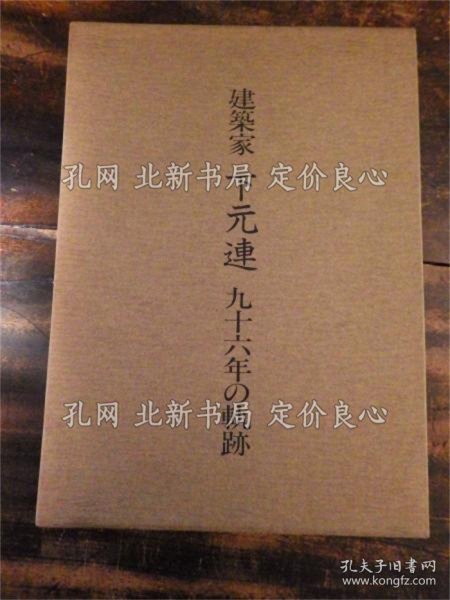 建築家 下元連 九十六年の軌跡
孔网 北新书局 定价良心
孔网 北新书局 定价良心
孔夫子旧书网
www.kongfz.com